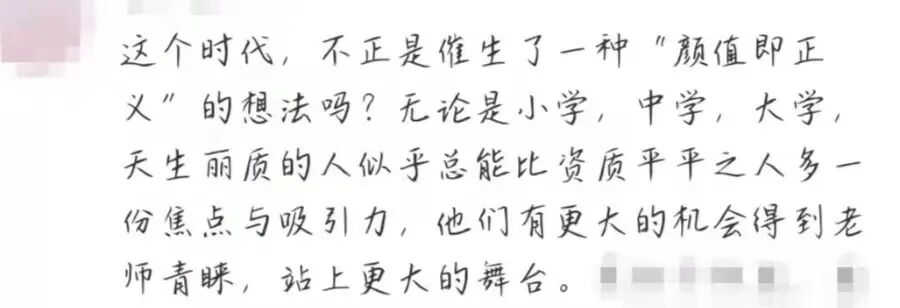 这个时代，不正是催生了一种“颜值即正
义”的想法吗？无论是小学，中学，大学，
天生丽质的人似乎总能比资质平平之人多一
份焦点与吸引力，他们有更大的机会得到老
师青睐，站上更大的舞台。